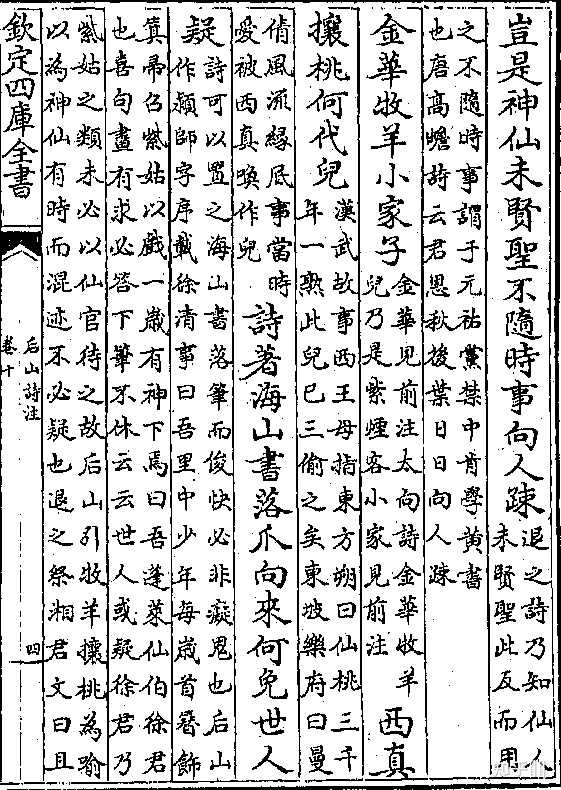 豈是神仙未賢聖不隨時事向人踈
退之詩乃知仙人
未賢聖此反而用
之不隨時事謂于元祐黨禁中肯學黃書
也唐高蟾詩云君恩秋後葉日日向人踈
金華牧羊小家子
金華見前注太向詩金華牧羊
兒乃是紫煙客小家見前注
西真
攘桃何代兒
漢武故事西王母指東方朔曰仙桃三千
年一熟此兒已三偷之矣東坡樂府曰曼
倩風流緣底事當時
愛被西真喚作兒
詩著海山書落爪向來何免世人
疑
詩可以置之海山書落筆而俊快必非癡鬼也后山
作頴師字序載徐清事曰吾里中少年每歳首飾
箕帚召紫姑以戲一歳有神下焉曰吾蓬萊仙伯徐君
也喜句畫有求必答下筆不休云云世人或疑徐君乃
紫姑之類未必以仙官待之故后山引牧羊攘桃為喻
以為神仙有時而混迹不必疑也退之祭湘君文曰且
欽定四庫全書
后山詩注
卷十
四